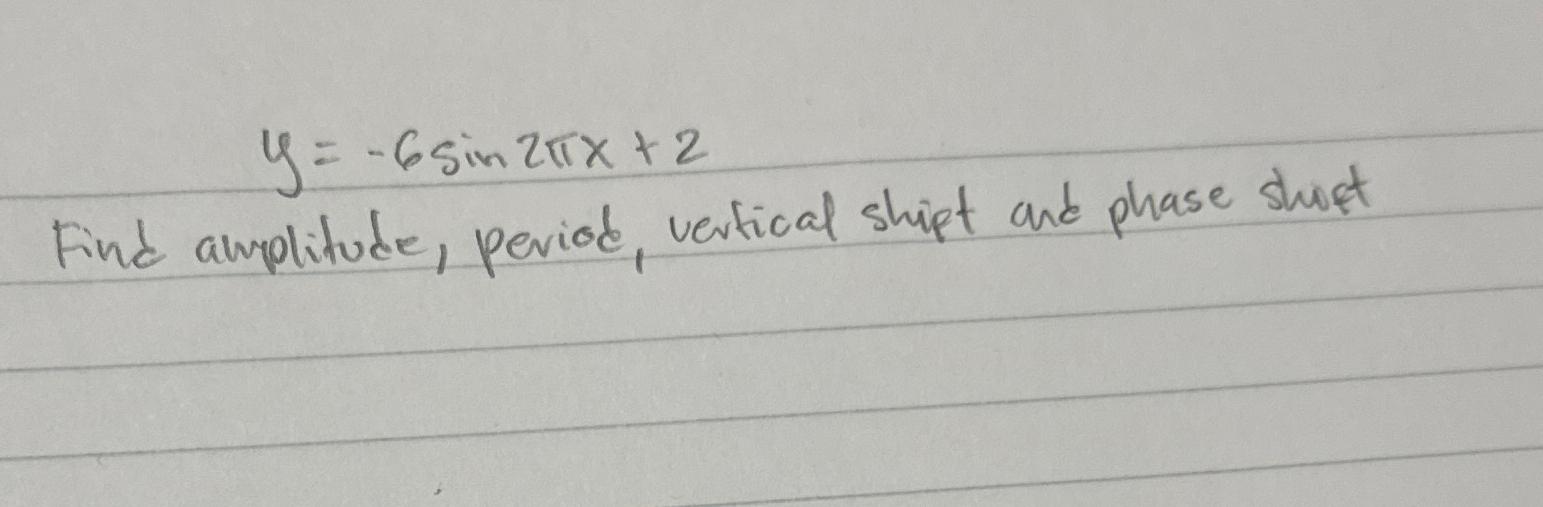 y = -6 sin 2πx + 2
Find amplitude, period, vertical shift and phase shift